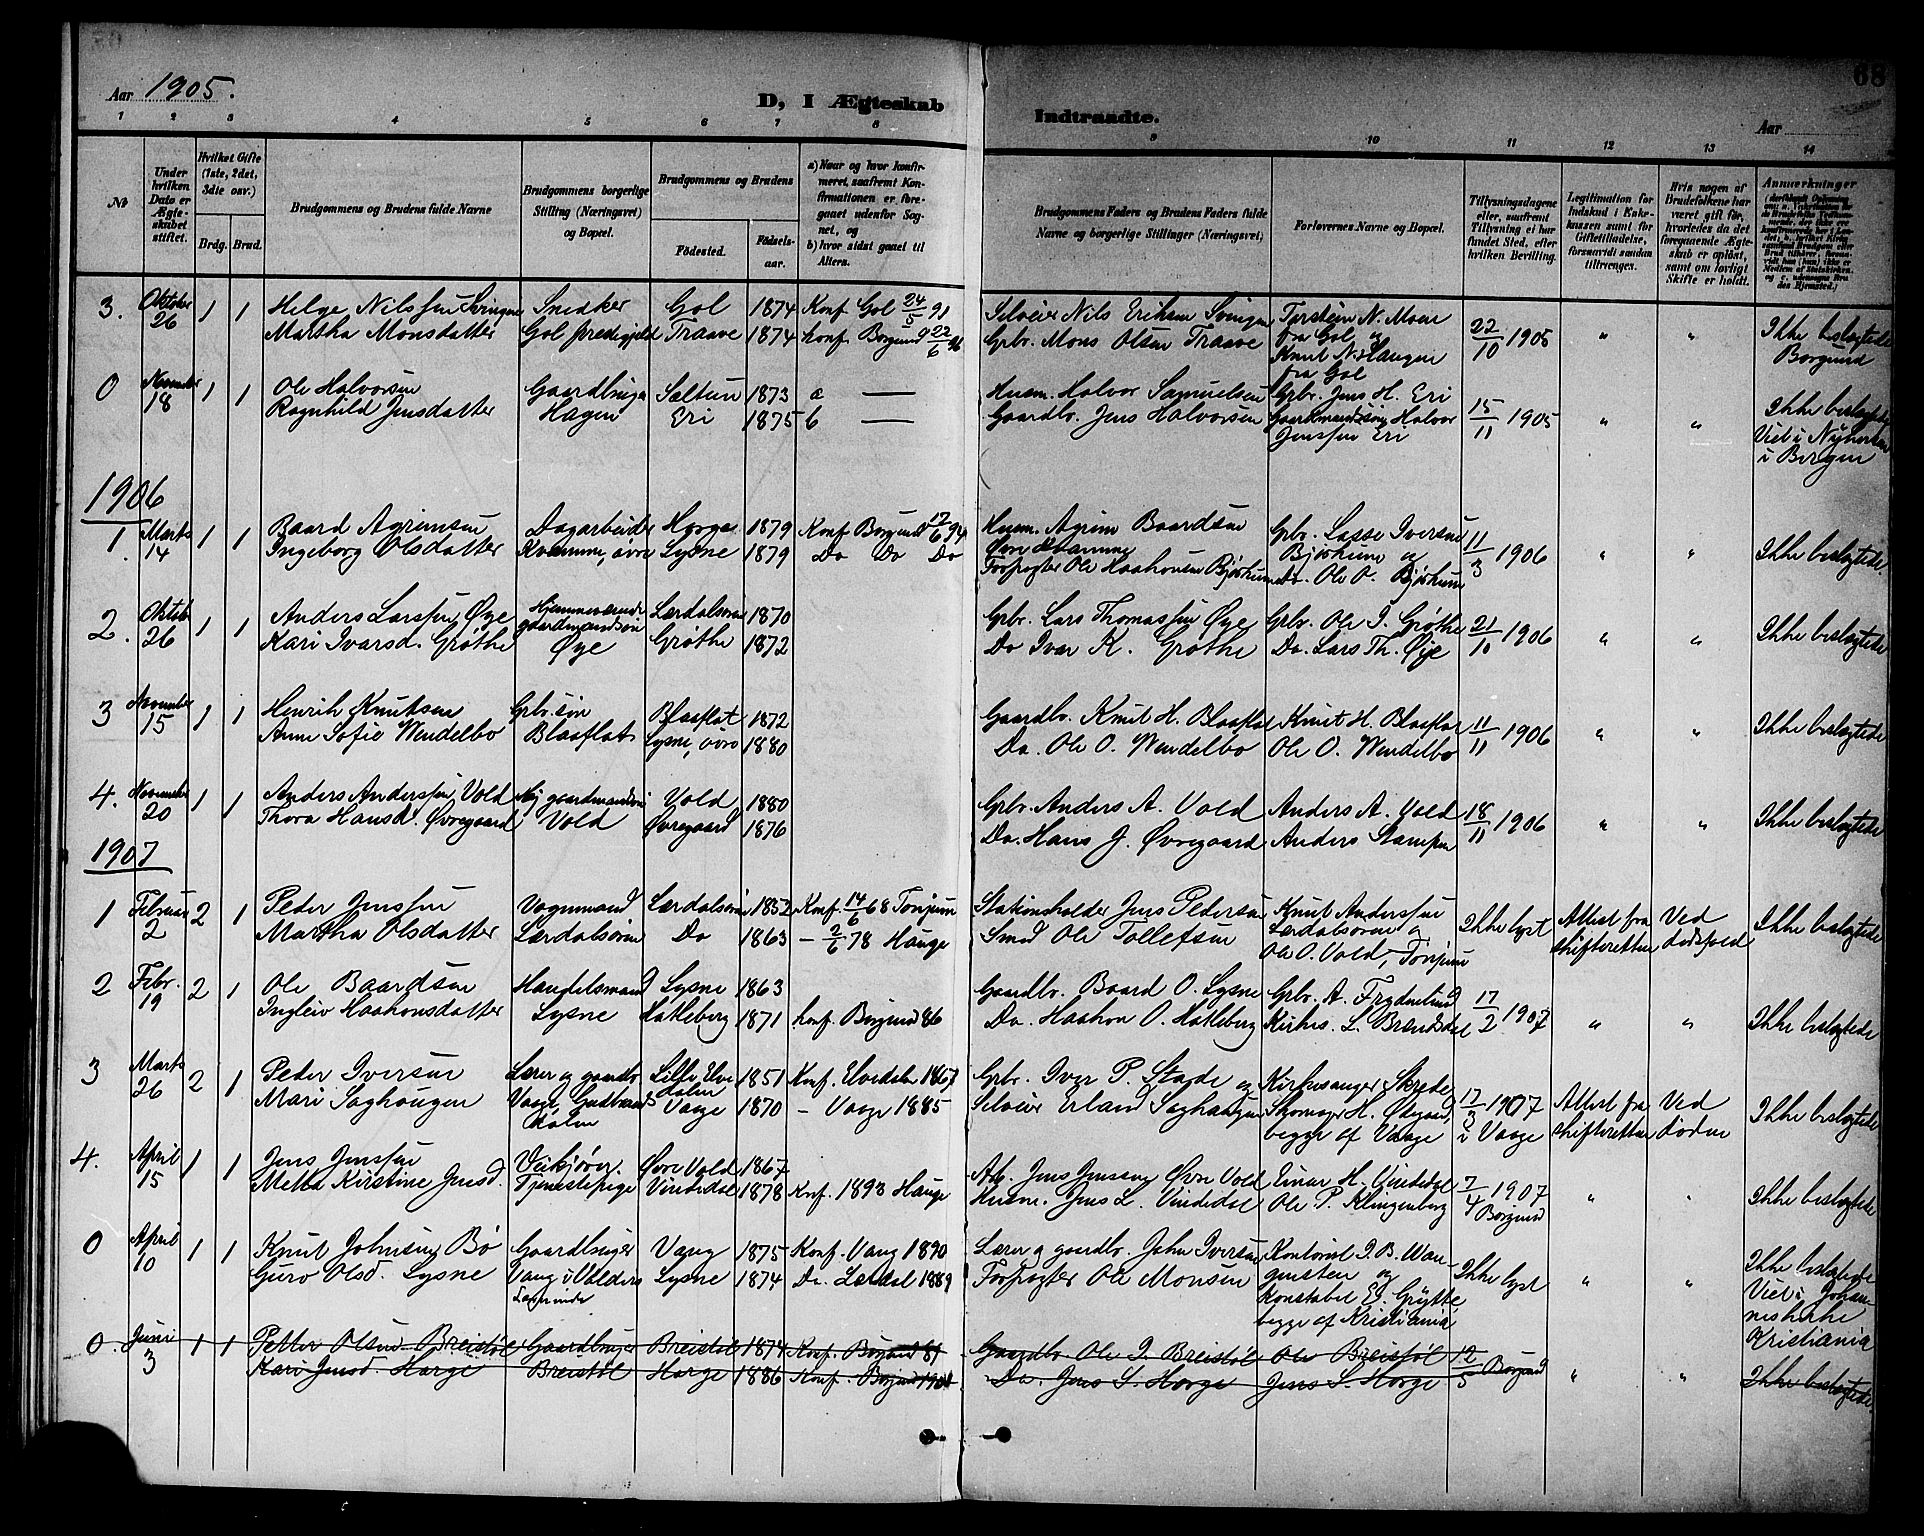 68
Aar 1905.
D, I Ægteskab
Indtraadte.
Aar
1 2 3 4 5 6 7 8 9 10 11 12 13 14
No
Under hvilken Dato er Ægteskabet stiftet.
Hvilket Gifte (1ste, 2det, 3die osv.)
Brdg. Brud.
Brudgommens og Brudens fulde Navne
Brudgommens borgerlige Stilling (Næringsvei) og Bopæl.
Brudgommens og Brudens
Födested. Födselsaar.
a) Naar og hvor konfirmeret, saafremt Konfirmationen er foregaaet udenfor Sognet, og
b) hvor sidst gaaet til Alters.
Brudgommens Faders og Brudens Faders fulde Navne og borgerlige Stillinger (Næringsvei)
Forlovernes Navne og Bopæl.
Tillysningsdagene eller, saafremt Tillysning ei har fundet Sted, efter hvilken Bevilling.
Legitimation for Indskud i Enkekassen samt for Giftetilladelse, forsaavidt saadan tiltrænges.
Hvis nogen af Brudefolkene har været gift för, hvorledes da det foregaaende Ægteskab er oplöst, samt om lovligt Skifte er holdt.
Anmærkninger
3. Oktober 26 1 1 Helge Nilssen Svingen Snedker Gol 1874 Konf Gol 24/5 91 Selveier Nils Eriksen Svingen Torstein N. Moen 22/10 1905 " " Ikke beslegtede
Martha Monsdatter Gol prestegjeld Traave 1874 konf. Borgund 22/6 Grbr. Mons Olsen Traave fra Gol og Knut N. Haugen fra Gol Borgund
0 November 18 1 1 Ole Halvorsen Gaardbruger Sæltun 1873 a — Husm. Halvor Samuelsen Grbr. Jens H. Eri 15/11 1905 " " Ikke beslegtede
Ragnhild Jensdatter Hagen Eri 1875 b — Gaardbr. Jens Halvorsen Gaardmandssøn Halvor Jenssen Eri Viet i Nykirken i Bergen
1906
1. Marts 14 1 1 Baard Agrimsen Dagarbeider Horge 1879 Konf Borgund 17/6 94 Husm. Agrim Baardsen Grbr. Lasse Iversen 11/3 1906 " " Ikke beslegtede.
Ingeborg Olsdatter Kvamme, øvre Lysne 1879 Do Do Do Øvre Kvamme Bjørkum og
Forpagter Ole Haakonsen Bjørkum Do. Ole O. Bjørkum
2. Oktob 26 1 1 Anders Larssen Øye Hjemmeværende Lærdalsøren 1870 Grbr. Lars Thomassen Øye Grbr. Ole I. Grøthe 21/10 1906 " " Ikke beslegtede
Kari Ivarsd. Grøthe gaardmandssøn Øye Grøthe 1872 Do Ivar K. Grøthe Do. Lars Th. Øye
3 November 15 1 1 Henrik Knutsen Grbr. søn Blaaflat 1872 Gaardbr. Knut H. Blaaflat Knut H. Blaaflat 11/11 1906 " " Ikke beslegtede
Anna Sofie Wendelbo Blaaflat Lysne, øvre 1880 Do. Ole O. Wendelbo Ole O. Wendelbo
4. November 20 1 1 Anders Anderssen Vold gaardmandssøn Vold 1880 Grbr. Anders A. Vold Anders A. Vold 18/11 1906 " " Ikke beslegtede
Thora Hansd. Øvregaard Vold Øvregaard 1876 Do. Hans J. Øvregaard Anders Stampen
1907
1 Februar 2 2 1 Peder Jenssen Vognmand Lærdalsøren 1852 Konf. 14/6 68 Tønjum Stationsholder Jens Pedersen Knut Anderssen Ikke lyst Attest fra Ved Ikke beslegtede
Martha Olsdatter Lærdalsøren Do 1863 - 2/6 78 Hauge Smed Ole Tollefsen Lærdalsøren og Ole O. Vold, Tønjum skifteretten dødsfald
2 Febr. 19 2 1 Ole Baardsen Handelsmand Lysne 1863 Gaardbr. Baard O. Lysne Grbr. A. Frydenlund 17/2 1907 " " Ikke beslegtede
Ingleiv Haakonsdatter Lysne Hatleberg 1871 konf. Borgund 86 Do. Haakon O. Hatleberg Kirkes. L. Brændsdal
3 Marts 26 2 1 Peder Iversen Lærer og gaardbr. Lille Elvedalen 1851 Konf. Elvedalen 1867 Grbr. Iver P. Stade og Kirkesanger Skrede 17/3 1907 Attest fra Ved Ikke beslegtede
Mari Saghougen Vaage Gudbrandsdalen Vaage 1870 - Vaage 1885 Selveier Erland Saghaugen Skomager H. Øtgaard, begge af Vaage i Vaage skifteretten døden
4. April 15 1 1 Jens Jenssen Veikjører. Øvre Vold 1867 Arb. Jens Jenssen Øvre Vold Einar H. Vindedal 7/4 1907 " " Ikke beslegtede
Metta Kirstine Jensd. Tjenestepige Vindedal 1878 Konf. 1893 Hauge Husm. Jens L. Vindedal Ole P. Klingenberg Borgund
0 April 10 1 1 Knut Johnsen Bø Gaardbruger Vang 1875 Konf. Vang 1890 Lærer og gaardbr. John Iversen Kontorist I. B. Wangensten og Ikke lyst " " Ikke beslegtede
Guro Olsd. Lysne Vang i Valders Lysne 1874 Do. Lærdal 1889 Forpagter Ole Monsen Konstabel E. Grytte begge af Kristiania Viet i Johanneskirke Kristiania
0. Juni 3 1 1 Petter Olsen Breistøl Gaardbruger Breistøl 1874 Konf. Borgund 89 Gaardbr. Ole I. Breistøl Ole Breistøl 12/5 Borgund " " Ikke beslegtede.
Kari Jensd. Horge Breistøl Horge 1886 Konf. Borgund 1901 Do. Jens L. Horge Jens L. Horge